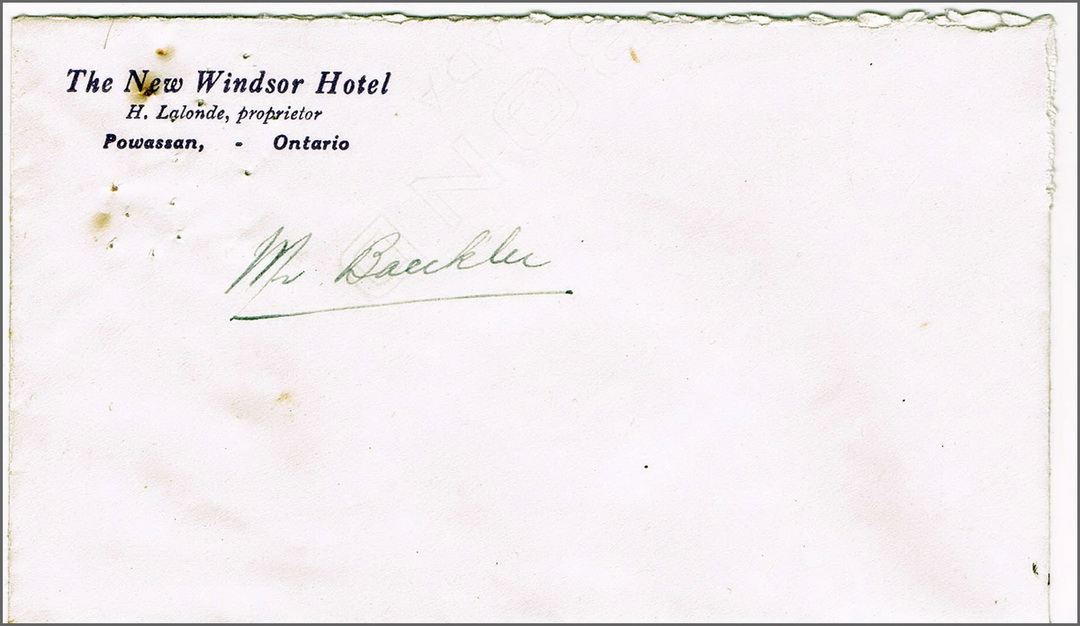 The New Windsor Hotel
H. Lalonde, proprietor
Powassan, - Ontario
Mr Baeckler